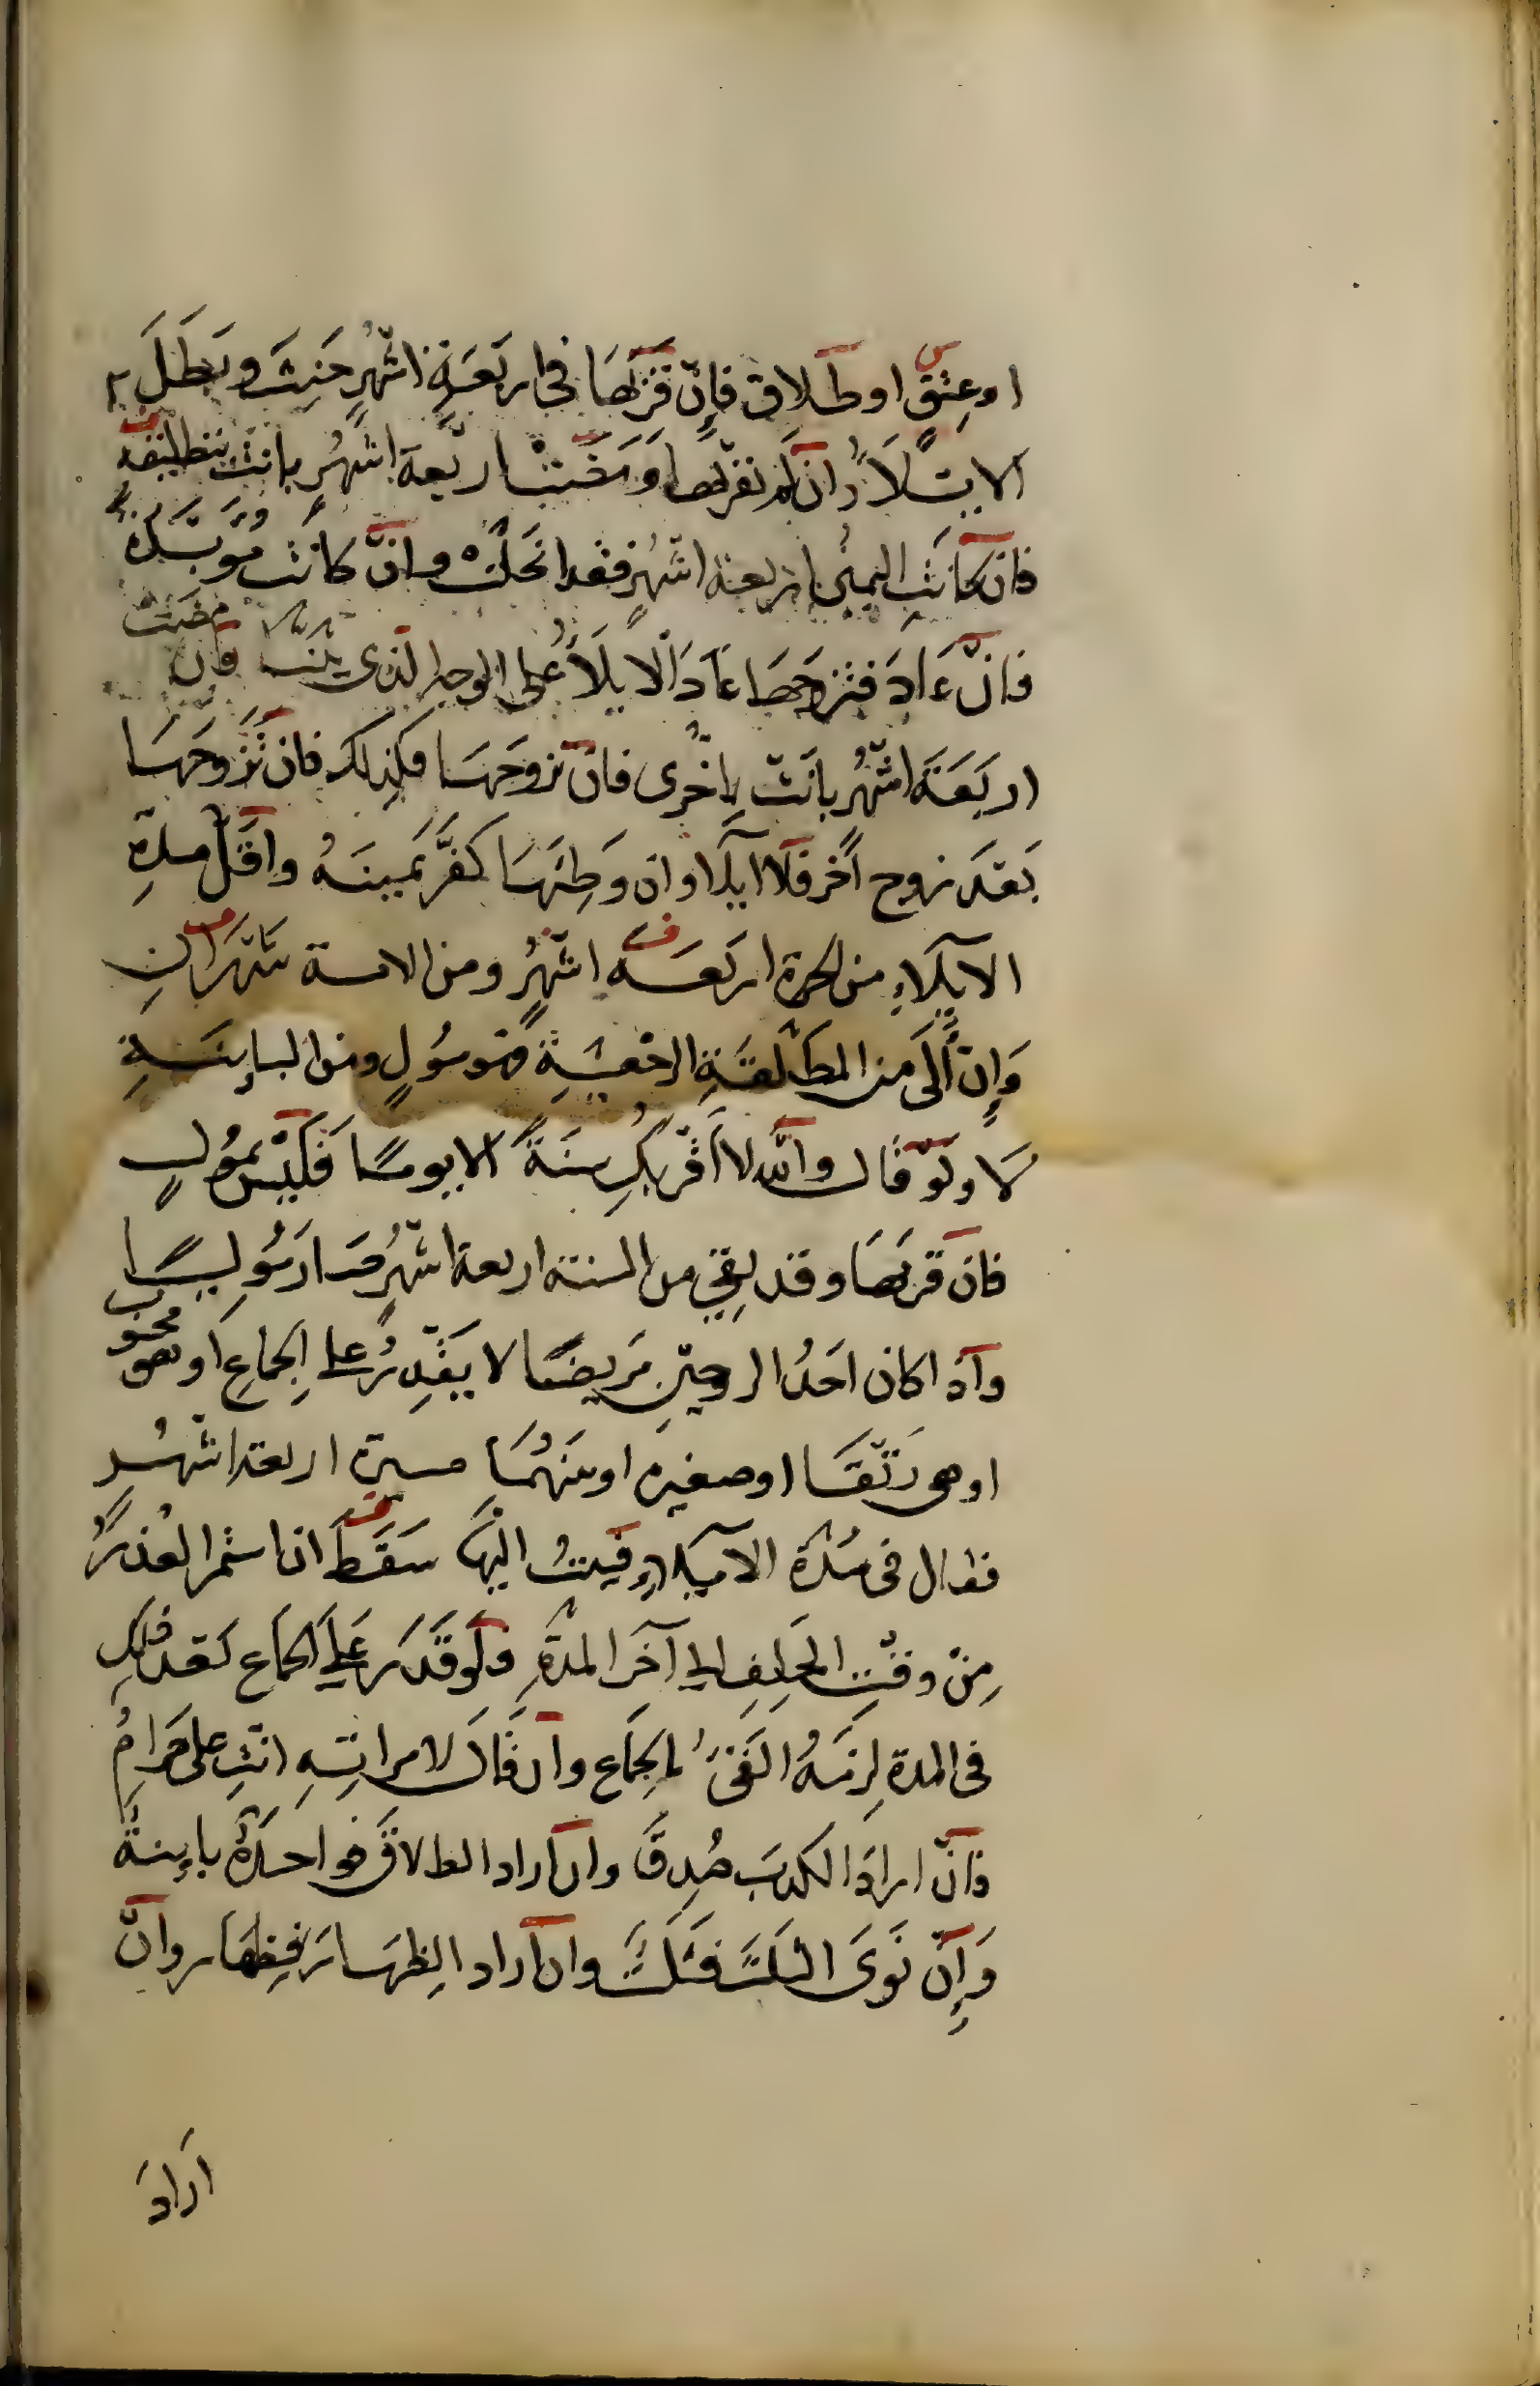 او عِتقٍ او طَلاق فإنْ قَرَبَها فى اربَعَةِ اشْهُرٍ حَنِثَ وبَطَلَ
الايلَاءُ وان لم يقربها وَمَضَتْ اربَعة اشهُرٍ بانَتْ بتطليقةٍ
فان كانَتِ اليمينُ اربعة اشهُرٍ فقد انحَلَّتْ وانْ كانَتْ مُؤَبَّدةً
فانْ عَادَ فتزوجَها عَادَ الايلَاءُ على الوجه الذى بيّنّا فان مضَتْ
اربَعَة اشْهُر بانَتْ باُخْرى فان تزوجَهَا فكذلك فان تَزَوجَهَا
بَعْدَ زوج آخر فلا ايلَاء وان وَطِئَهَا كفَّر يَمينَهُ واقَلّ مدةِ
الايلَاءِ من الحرة اربَعَة اشْهُرٍ ومن الامة شَهْرَانِ
وَإنْ آلَى من المطَلقَةِ الرجْعيةِ فهو مُولٍ ومن الباينَةِ
لا ولَوْ قال والله لا اقْرَبُكِ سَنَةً الا يومًا فَلَيْسَ بمُولٍ
فان قربَها وقد بقى من السنة اربعة اشهُرٍ صَارَ مُوليًا
واذا كان احَدُ الزوجينِ مَريضًا لا يَقْدِرُ على الجماعِ او هو مجبوب
او هى رَتْقَا او صغيرة او بينهُمَا مسيرة اربعة اشْهُرٍ
فقال فى مُدة الايلاءِ فيتُ اليهَا سَقَطَ ان استمر العُذرُ
مِنْ وقْتِ الحَلِفِ الى آخر المدَّةِ ولَوْ قَدَرَ عَلَى الجماع بَعْد ذلك
فى المدة لزمَهُ الفَىُ بالجمَاعِ وان قَالَ لامراتِهِ انتِ على حَرامٌ
فانْ ارادَ الكذبَ صُدِقَ وان اراد الطلاقَ فواحدَةٌ باينةٌ
وَإنْ نَوَى الثلثَ فثَلثٌ وان اراد الظِهَارَ فظِهَار وانْ
ارادَ